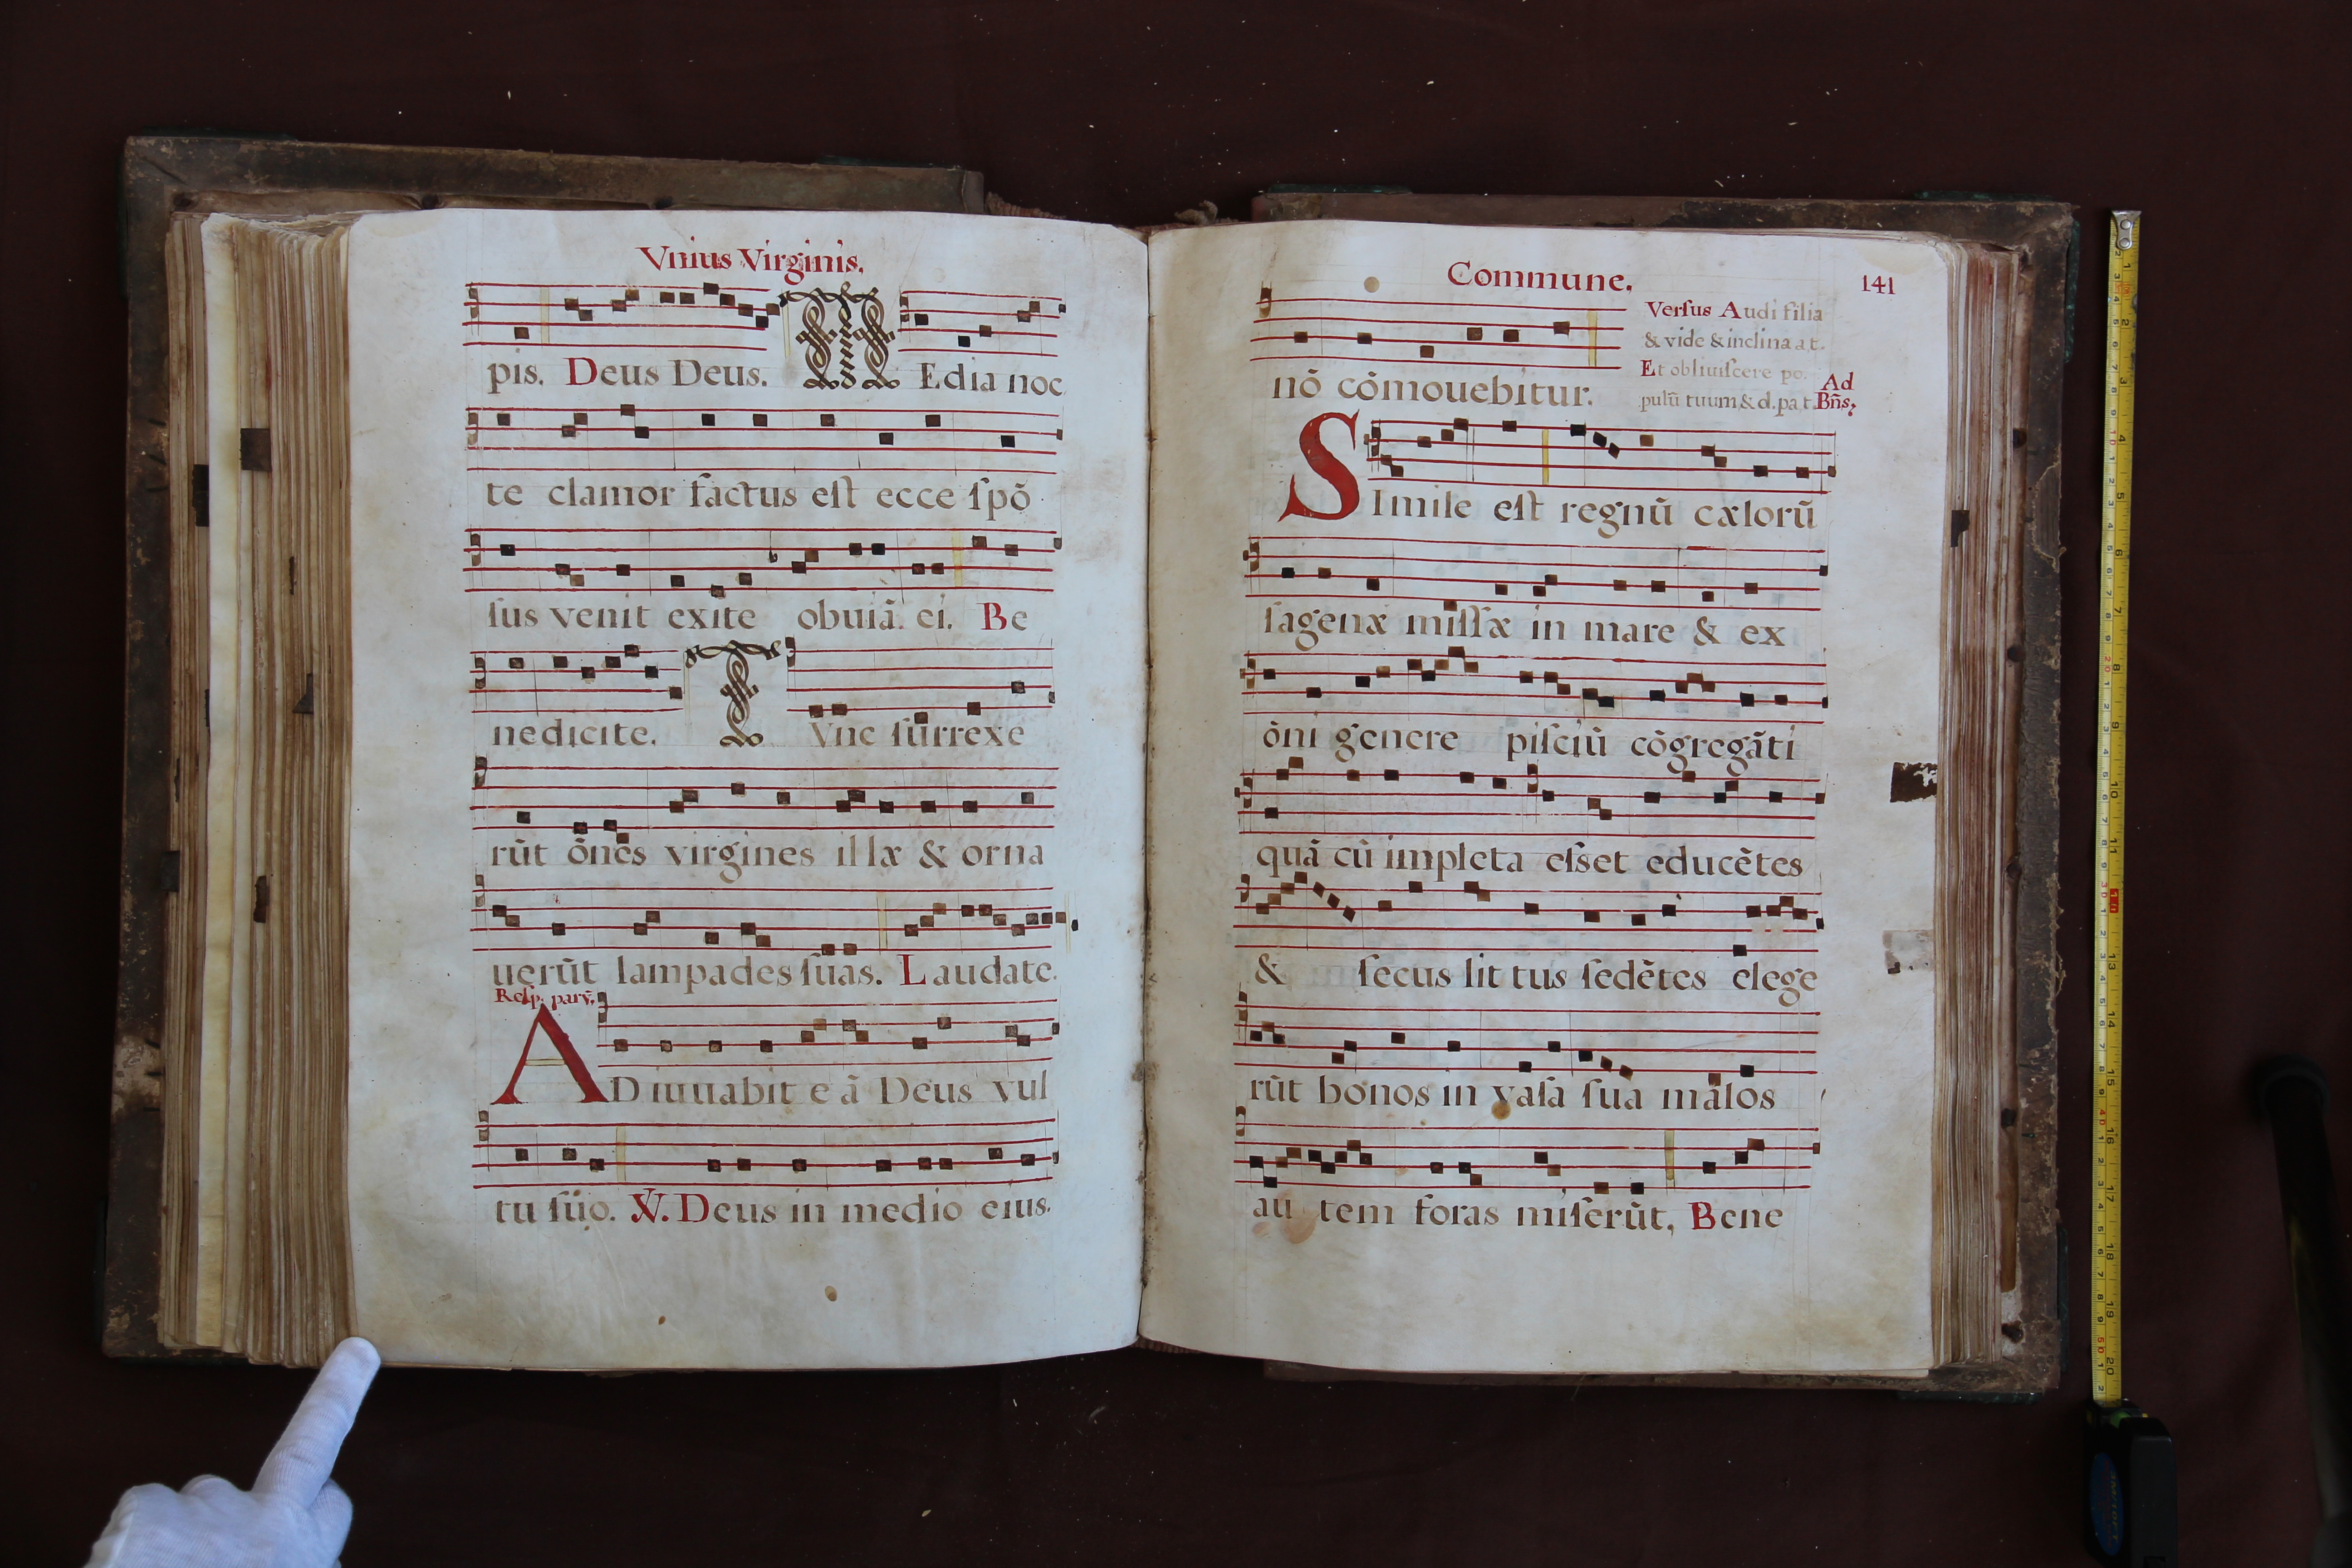 Vnius Virginis.
pis. Deus Deus. MEdia noc
te clamor factus eſt ecce ſpõ
ſus venit exite obuiã. ei. Be
nedicite. TVnc ſurrexe
rũt õnes virgines illæ & orna
uerũt lampades ſuas. Laudate.
ADiuuabit eã Deus vul
tu ſuo. ℣. Deus in medio eius.
Commune. 141
Verſus Audi filia
& vide & inclina a.t.
Et obliuiſcere po.
pulũ tuum & d. pa.t. Ad Bñs,
nõ cõmouebitur.
SImile eſt regnũ cælorũ
ſagenæ miſſæ in mare & ex
õni genere piſciũ cõgregãti
quã cũ impleta eſset educẽtes
& ſecus littus ſedẽtes elege
rũt bonos in vaſa ſua malos
autem foras miſerũt, Bene